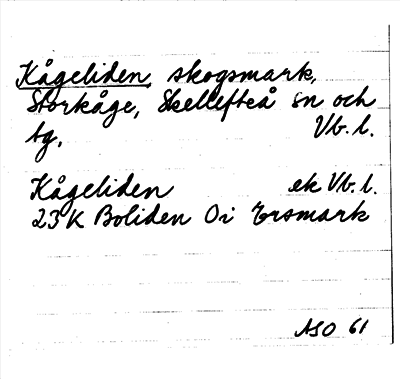 Kågeliden, skogsmark,
Storkåge, Skellefteå sn och
tg. Vb. l.
Kågeliden ek Vb. l.
23 K Boliden 0i Ersmark
ASO 61